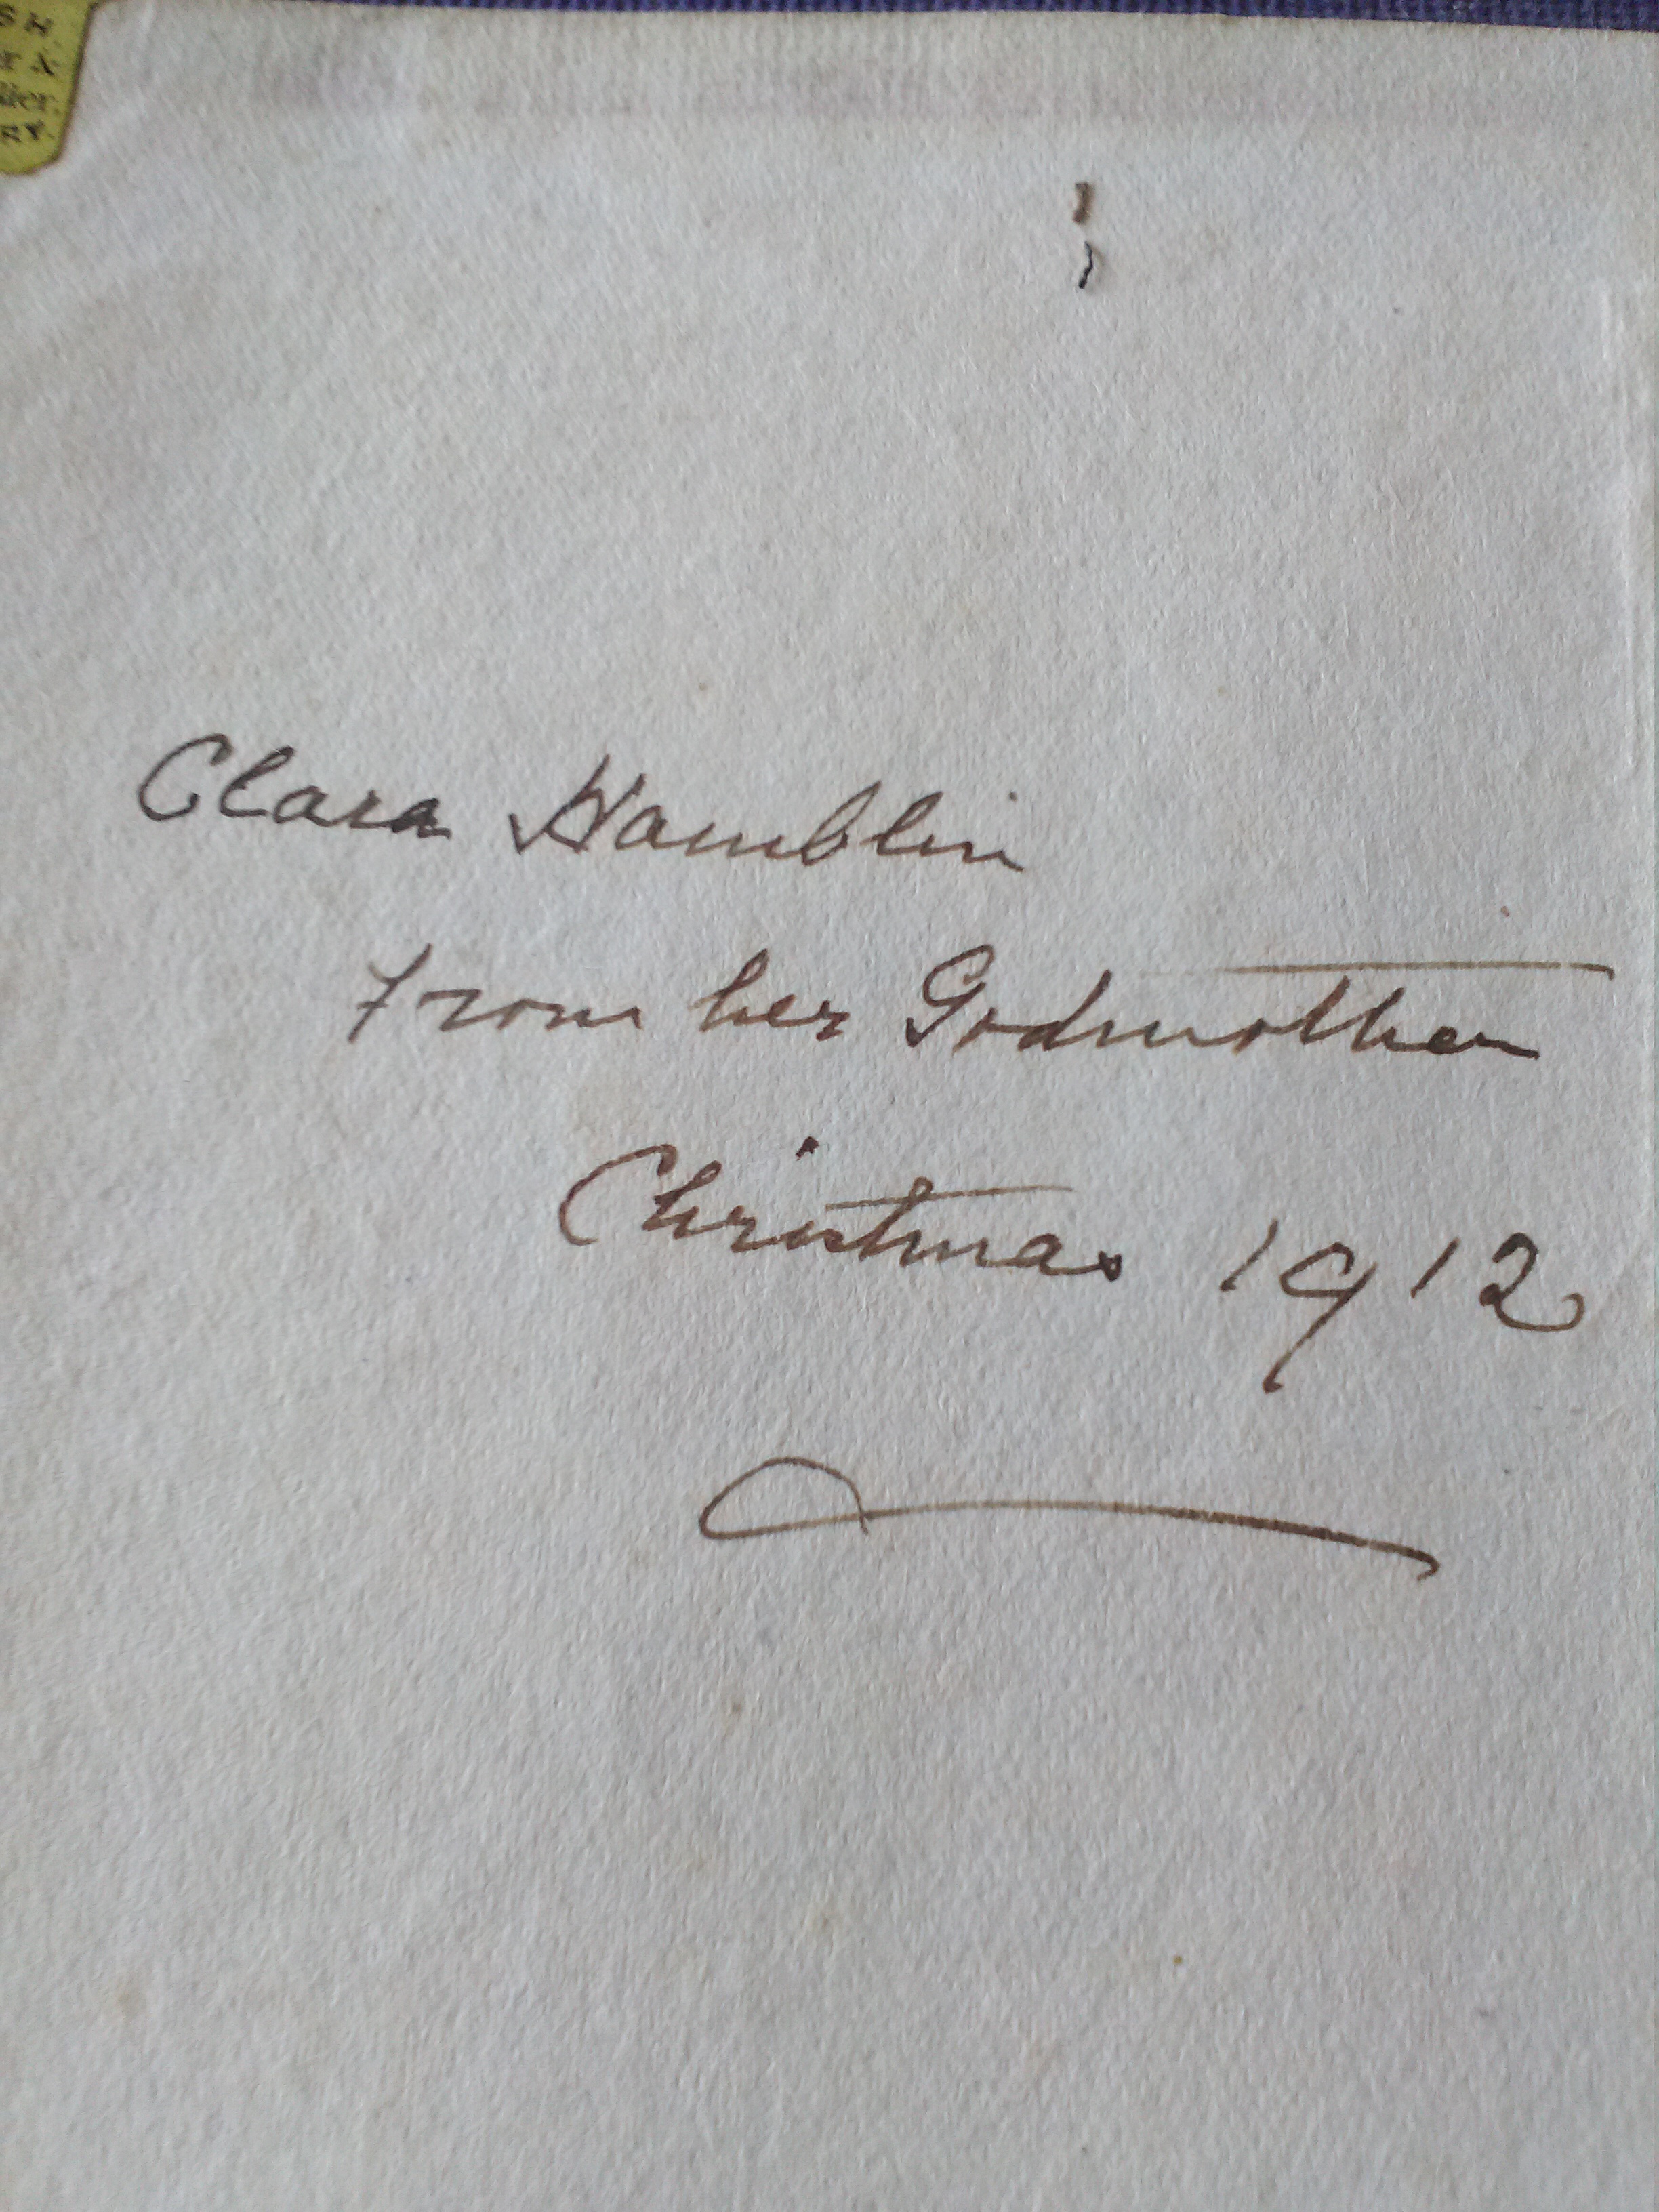 SH
r &
ller.
RY.
Clara Hamblin
From her Godmother
Christmas 1912